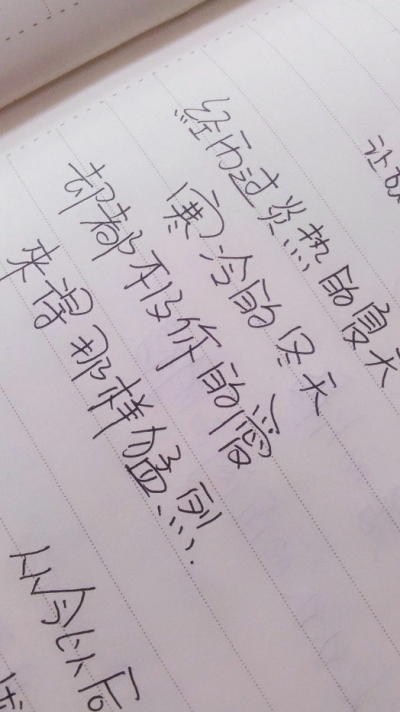 让
经历过炎热的夏天
寒冷的冬天
却都不及你的愛
来得那样猛烈.
从今以后